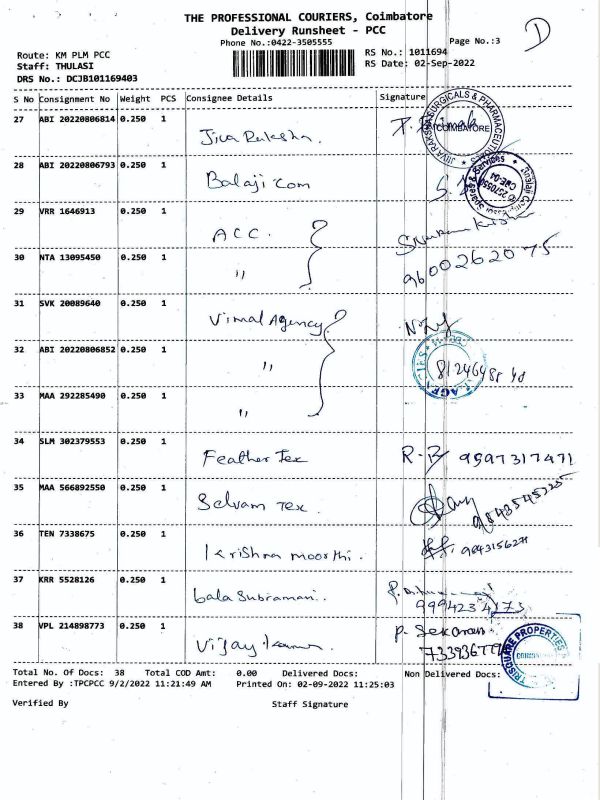 THE PROFESSIONAL COURIERS, Coimbatore
Delivery Runsheet - PCC
Phone No.:0422-3505555
Page No.:3
D
Route: KM PLM PCC
RS No.: 1011694
Staff: THULASI
RS Date: 02-Sep-2022
DRS No.: DCJB101169403
S No Consignment No Weight PCS Consignee Details Signature
27 ABI 20220806814 0.250 1 Jiva Raksha.
JIVA RAKSHA SURGICALS & PHARMACEUTICALS
COIMBATORE
28 ABI 20220806793 0.250 1 Balaji Com
29 VRR 1646913 0.250 1 ACC.
30 NTA 13095450 0.250 1 " 9600262075
31 SVK 20089640 0.250 1 Vimal Agency
32 ABI 20220806852 0.250 1 "
33 MAA 292285490 0.250 1 "
34 SLM 302379553 0.250 1 Feather Tex R. 9597317471
35 MAA 566892550 0.250 1 Selvam Tex.
36 TEN 7338675 0.250 1 Krishna moorthi. 9843156271
37 KRR 5528126 0.250 1 bala Subramani.
38 VPL 214898773 0.250 1 Vijay kumar P. Sekaran
TRISQUARE PROPERTIES
Total No. Of Docs: 38 Total COD Amt: 0.00 Delivered Docs: Non Delivered Docs:
Entered By :TPCPCC 9/2/2022 11:21:49 AM Printed On: 02-09-2022 11:25:03
Verified By Staff Signature